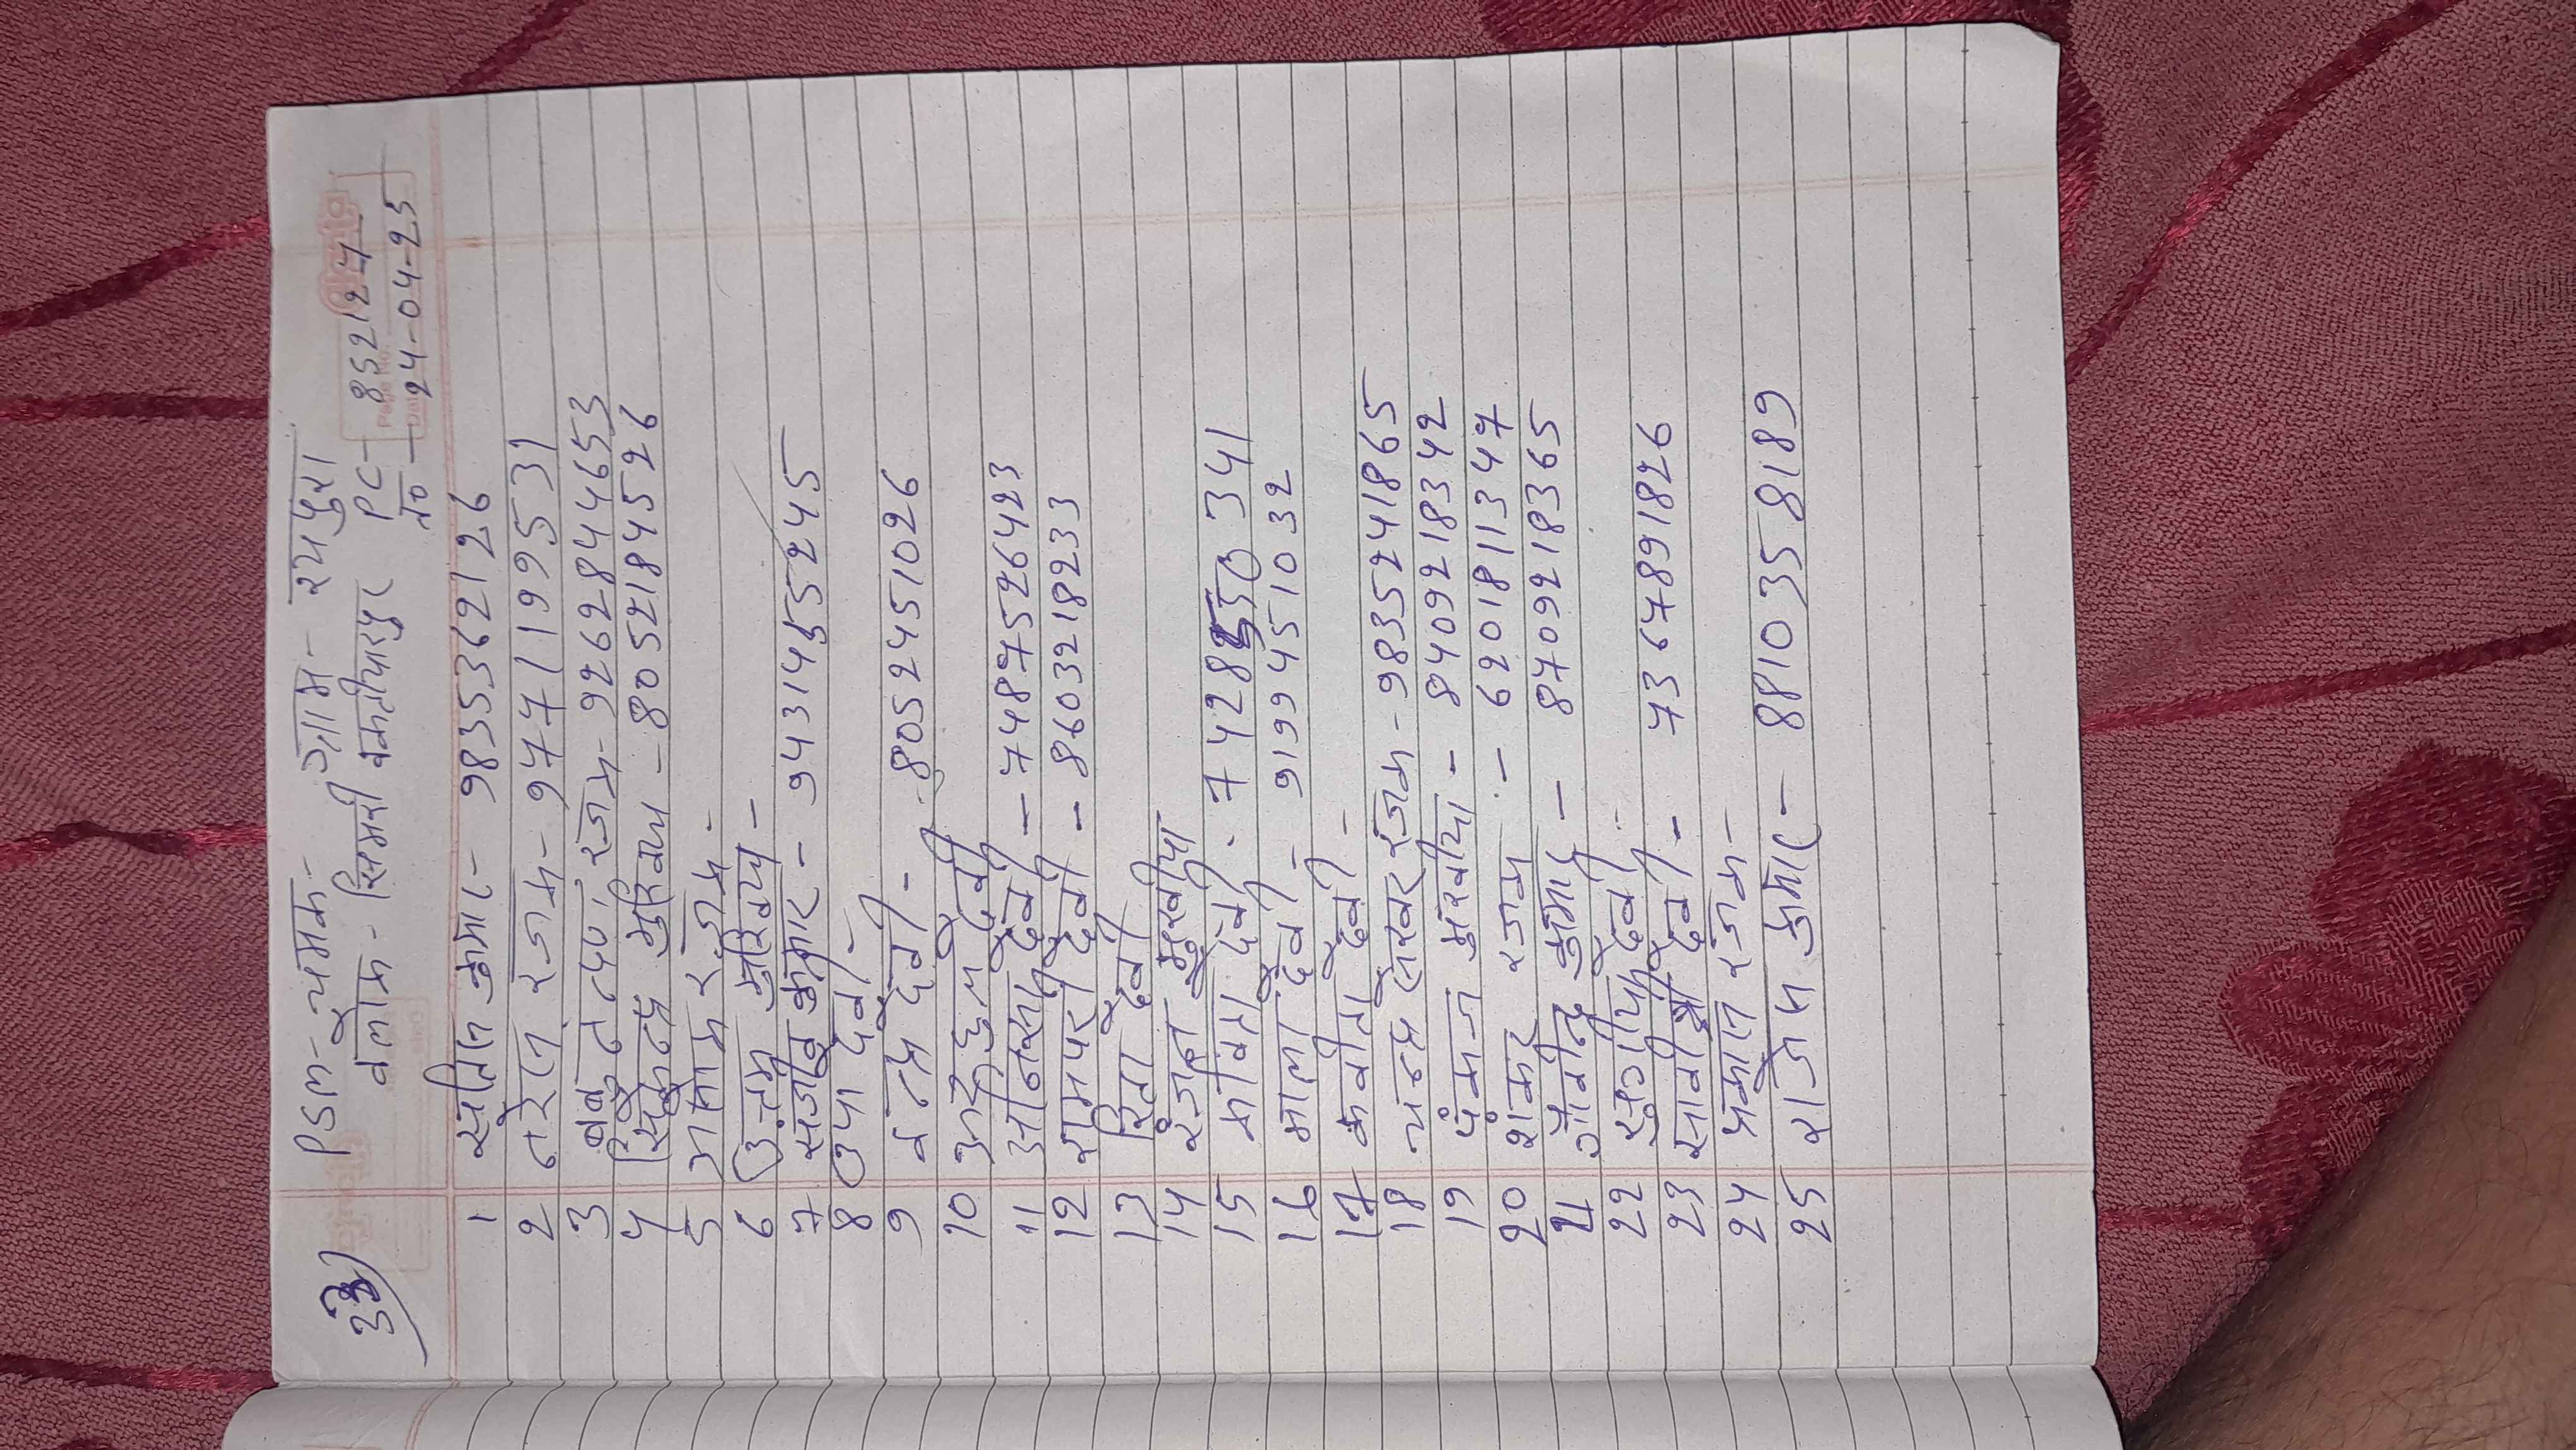 33
PSM - चंमन - ग्राम - रयपुरा
ब्लॉक - सिमरी बख्तीयारपुर PC - 852127
ता० - 24-04-25
1 सुनिल कुमार - 9835362126
2 नरेश रजक - 9771199531
3 रजक - 9262844653
4 सिकन्द्र मुखिया - 8052184526
5 रजक -
6 उत्तम मुखिया -
7 संजीव कुमार - 9431455245
8 उषा देवी -
9 चन्द्र देवी - 8052451026
10 देवी
11 अनिता देवी - 7487526423
12 रामपरी देवी - 8603218233
13 रिता देवी
14 रंजन मुखीया
15 सविता देवी - 7428550341
16 माला देवी - 9199451032
17 कवीता देवी -
18 चन्द्र शेखर रजक - 9835241865
19 पंकज मुखीया - 8409218342
20 शंकर रजक - 6201811347
21 गोवीन्द कुमार - 8709218365
22 देवी -
23 सावीत्री देवी - 7367891826
24 प्रकाश रजक -
25 राजेश कुमार - 8810358189